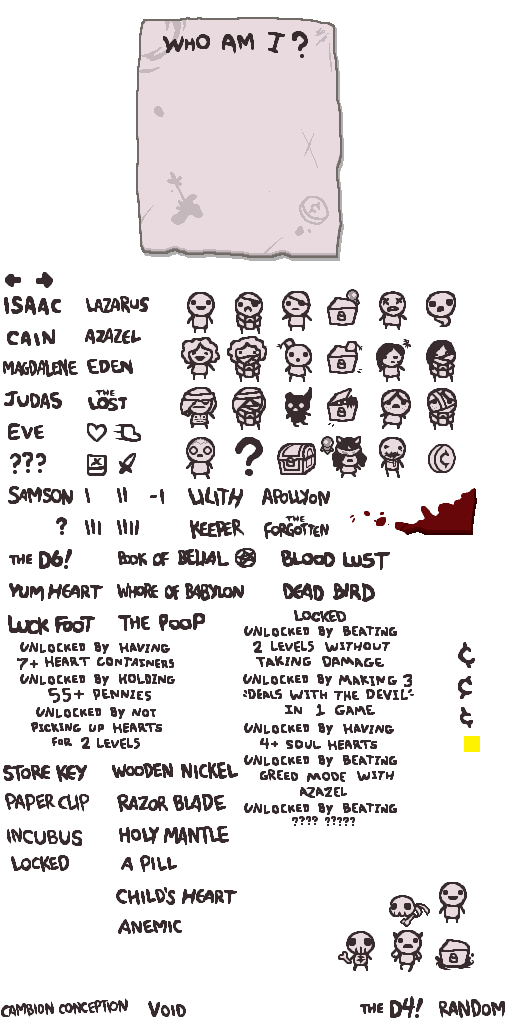 WHO AM I ?
ISAAC LAZARUS
CAIN AZAZEL
MAGDALENE EDEN
JUDAS THE LOST
EVE
???
?
SAMSON I II -I LILITH APOLLYON
? III IIII KEEPER THE FORGOTTEN
THE D6! BOOK OF BELIAL BLOOD LUST
YUM HEART WHORE OF BABYLON DEAD BIRD
LUCK FOOT THE POOP
UNLOCKED BY HAVING
7+ HEART CONTAINERS
UNLOCKED BY HOLDING
55+ PENNIES
UNLOCKED BY NOT
PICKING UP HEARTS
FOR 2 LEVELS
LOCKED
UNLOCKED BY BEATING
2 LEVELS WITHOUT
TAKING DAMAGE
UNLOCKED BY MAKING 3
"DEALS WITH THE DEVIL"
IN 1 GAME
UNLOCKED BY HAVING
4+ SOUL HEARTS
UNLOCKED BY BEATING
GREED MODE WITH
AZAZEL
UNLOCKED BY BEATING
???? ?????
¢
¢
¢
STORE KEY WOODEN NICKEL
PAPER CLIP RAZOR BLADE
INCUBUS HOLY MANTLE
LOCKED A PILL
CHILD'S HEART
ANEMIC
CAMBION CONCEPTION VOID THE D4! RANDOM